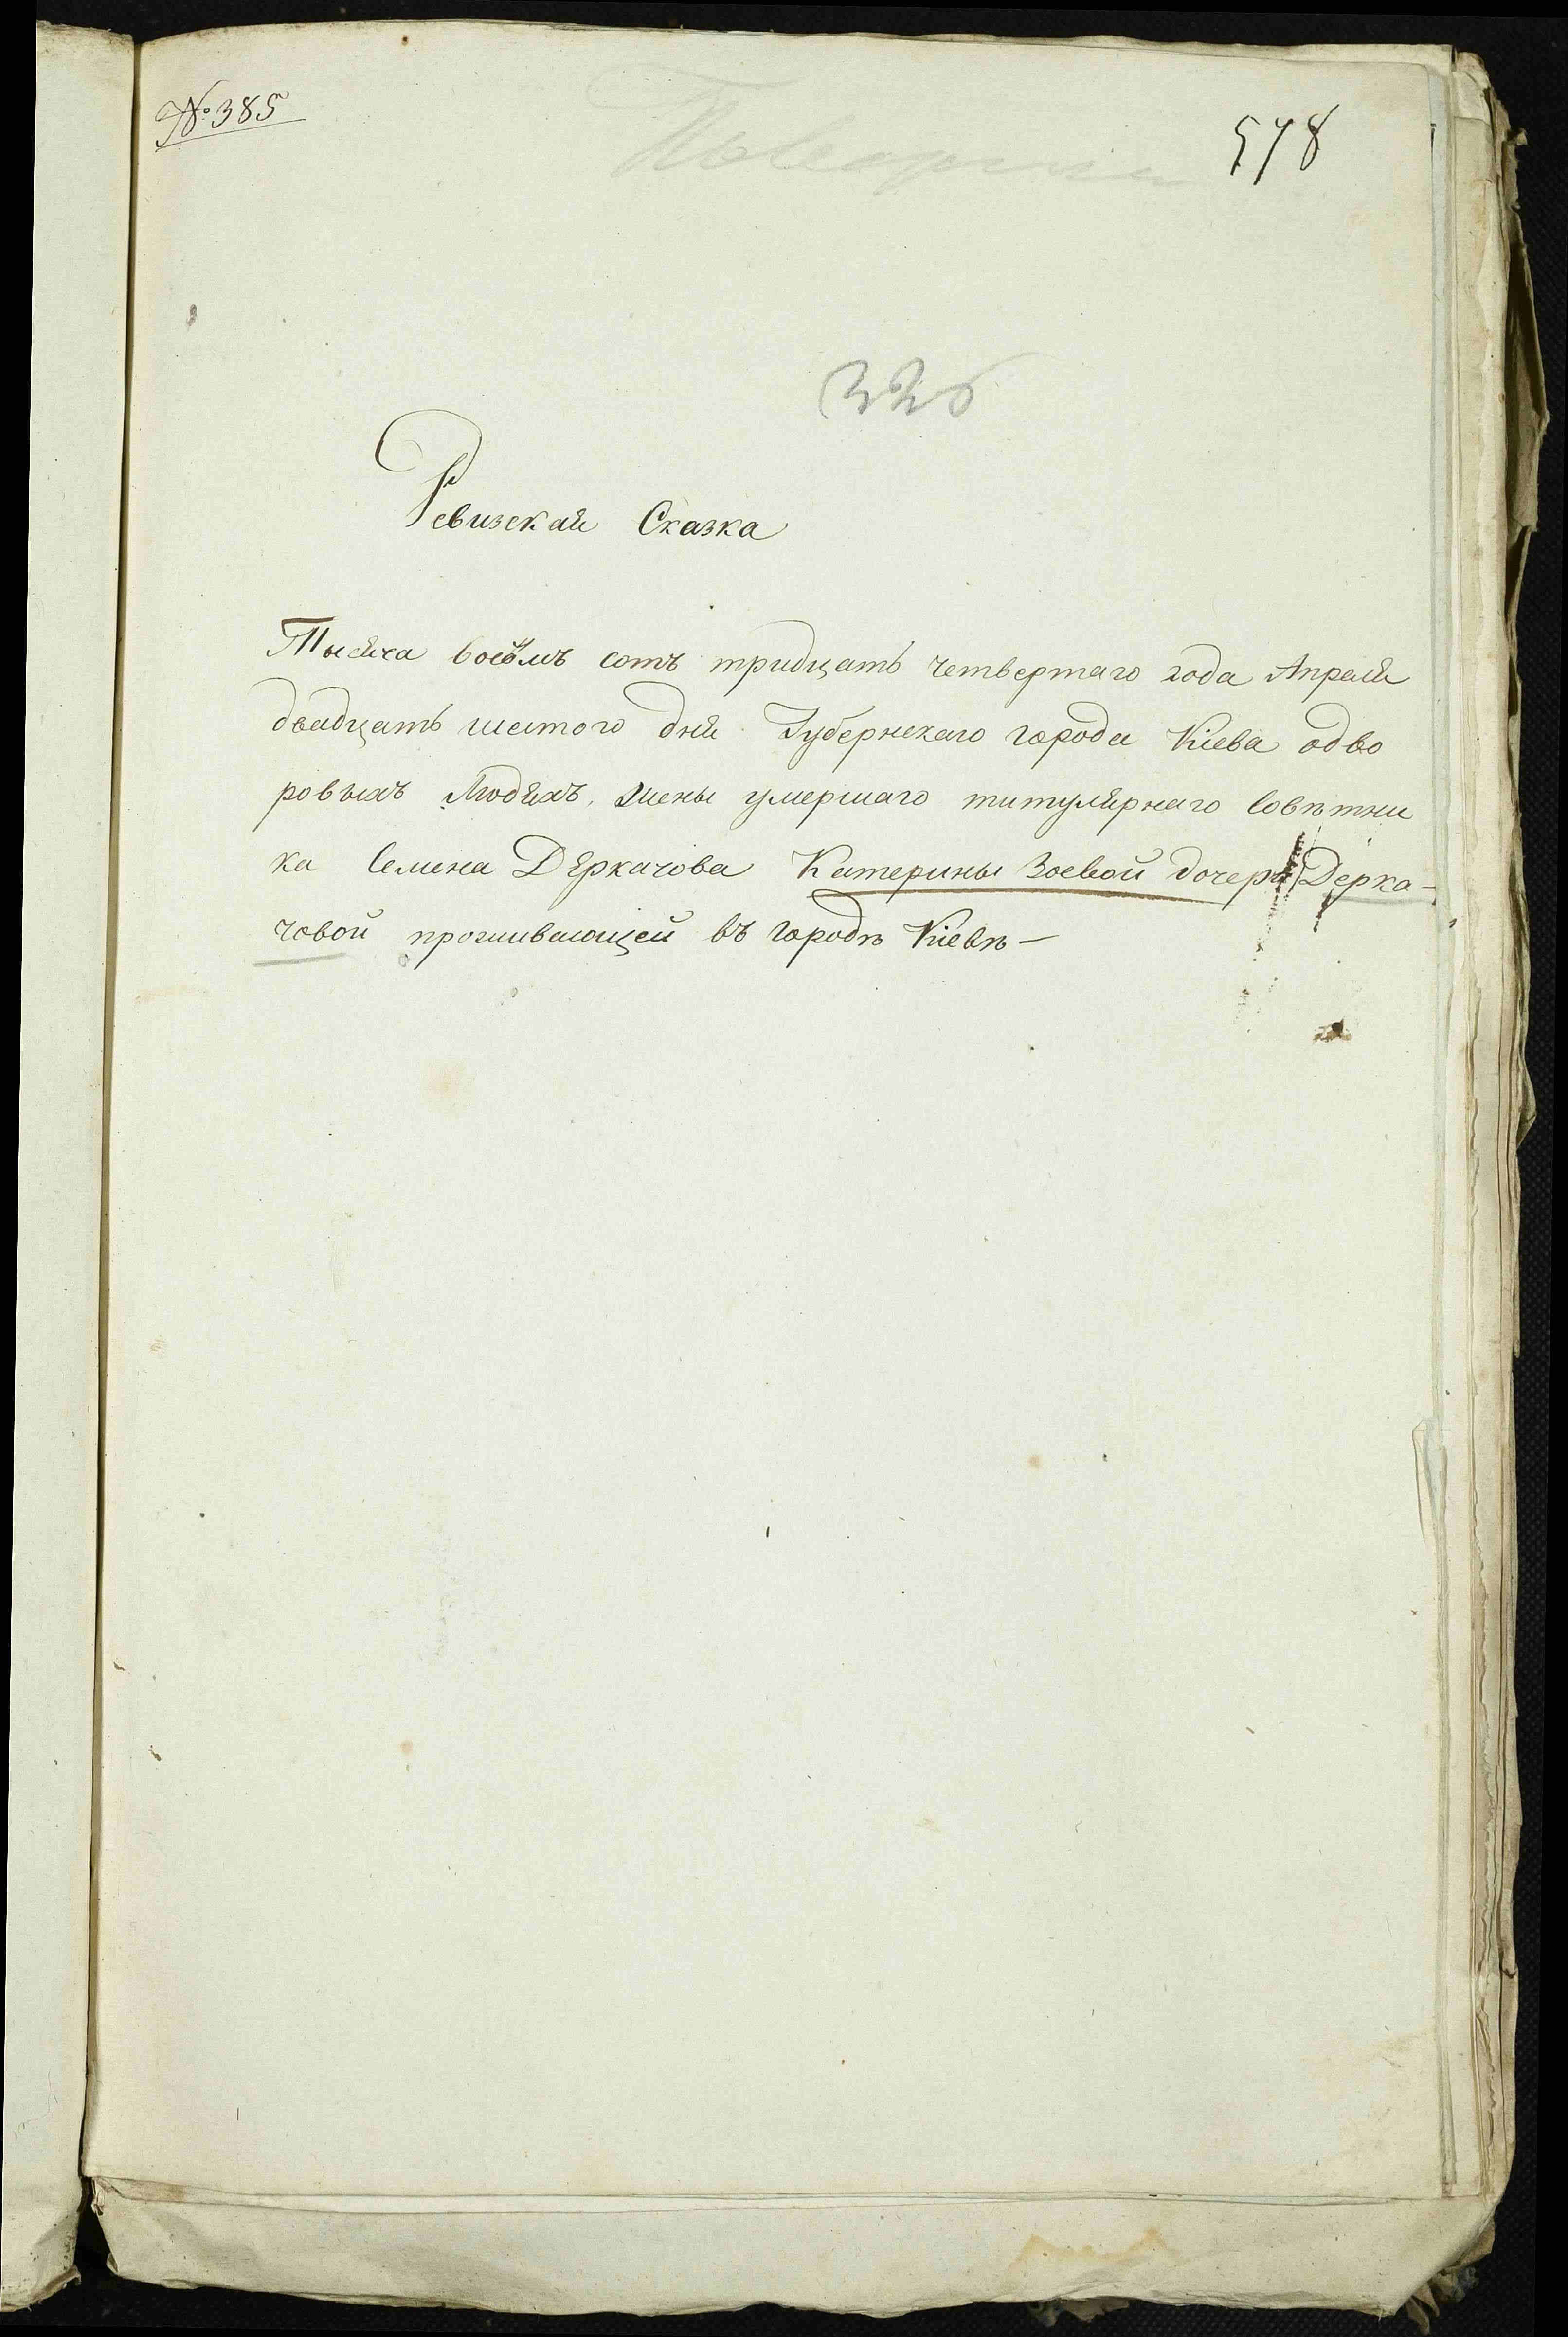 № 385
578
326
Ревизская Сказка
Тысяча восемъ сотъ тридцать четвертаго года Апреля
двадцать шестого дня Губернскаго города Кіева одво
ровыхъ Людяхъ, жены умершаго титулярнаго совѣтни
ка Семена Деркачова Катерины Зоевой дочери Дерка-
човой проживающей въ городѣ Кіевѣ —